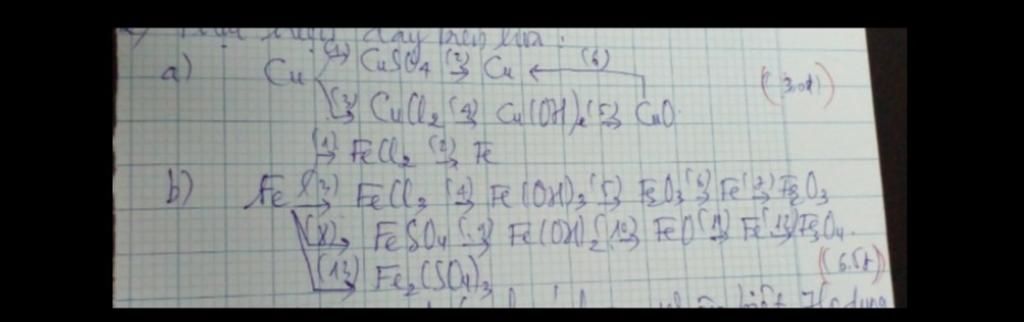 a) Cu (1)→ CuSO4 (2)→ Cu ←(6) (3.0đ)
(3)→ CuCl2 (4)→ Cu(OH)2 (5)→ CuO
(1)→ FeCl2 (2)→ Fe
b) Fe (3)→ FeCl3 (4)→ Fe(OH)3 (5)→ Fe2O3 (6)→ Fe (7)→ Fe2O3
(8)→ FeSO4 (9)→ Fe(OH)2 (10)→ FeO (11)→ Fe (12)→ Fe3O4
(13)→ Fe2(SO4)3 (6.5đ)